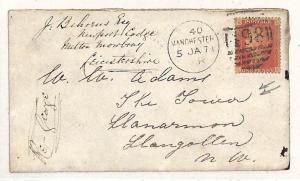 J. Behrens Esq
Lodge
Melton Mowbray
Leicestershire
40
MANCHESTER
5 JA 71
R
498
W. W. Adams
The Tower
Llanarmon
Llangollen
N.W.